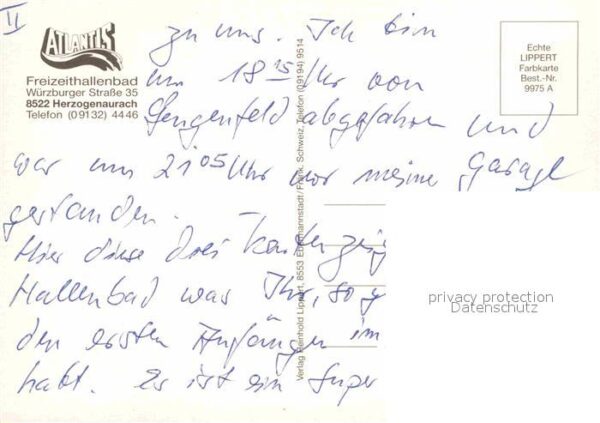 II
ATLANTIS
Freizeithallenbad
Würzburger Straße 35
8522 Herzogenaurach
Telefon (0 91 32) 44 46
Echte
LIPPERT
Farbkarte
Best.-Nr.
9975 A
Verlag Reinhold Lippert, 8553 Ebermannstadt/Fränk. Schweiz, Telefon (09194) 9514
zu uns. Ich bin
um 18 15 Uhr von
Lengenfeld abgefahren und
war um 21 05 Uhr vor meine Garage
gestanden.
Hier diese drei Karten zeig
Hallenbad was Ihr, so
den ersten Anfängen im
habt. Es ist ein Super
privacy protection
Datenschutz